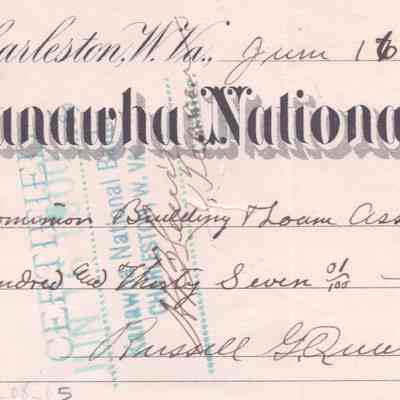 arleston, W. Va., June 16
anawha National
ominion Building & Loan Ass
ndred and Thirty Seven 01/100
Russell G. Qua
CERTIFIED
JUN
Kanawha National Bank
CHARLESTON, W. VA.
Cashier
05